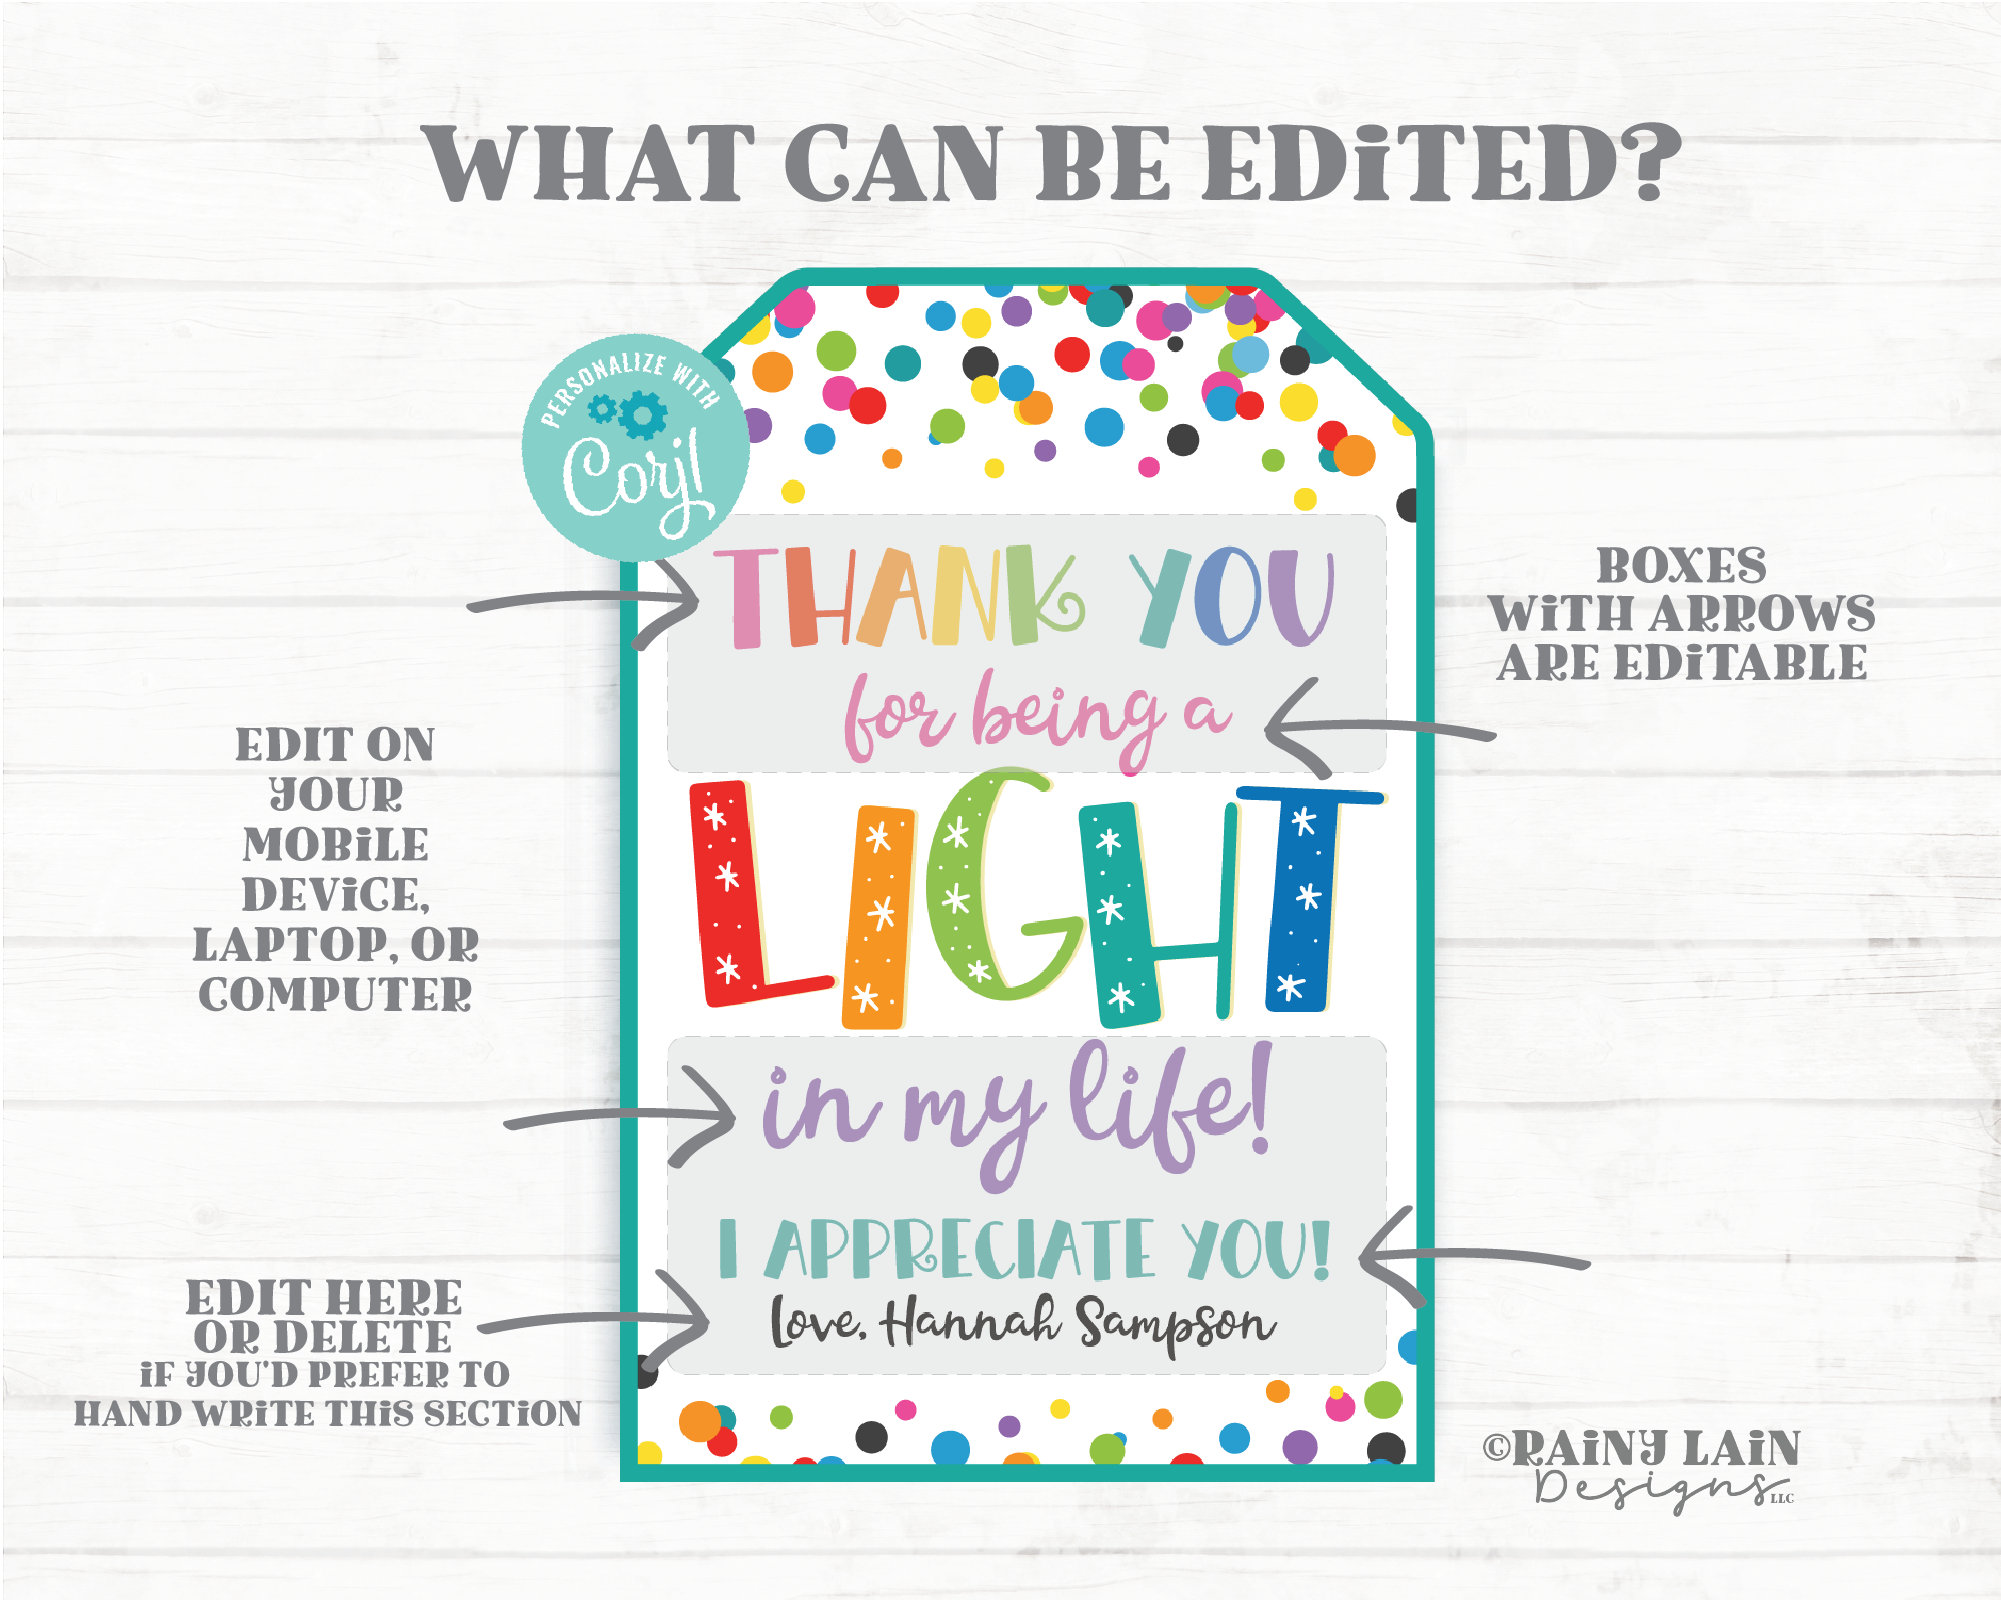 WHAT CAN BE EDiTED?
PERSONALIZE WITH
Corjl
THANK YOU
for being a
LIGHT
in my life!
I APPRECIATE YOU!
Love, Hannah Sampson
BOXES
WiTH ARROWS
ARE EDiTABLE
EDIT ON
YOUR
MOBiLE
DEViCE,
LAPTOP, OR
COMPUTER
EDIT HERE
OR DELETE
iF YOU'D PREFER TO
HAND WRiTE THiS SECTiON
©RAiNY LAiN
Designs LLC